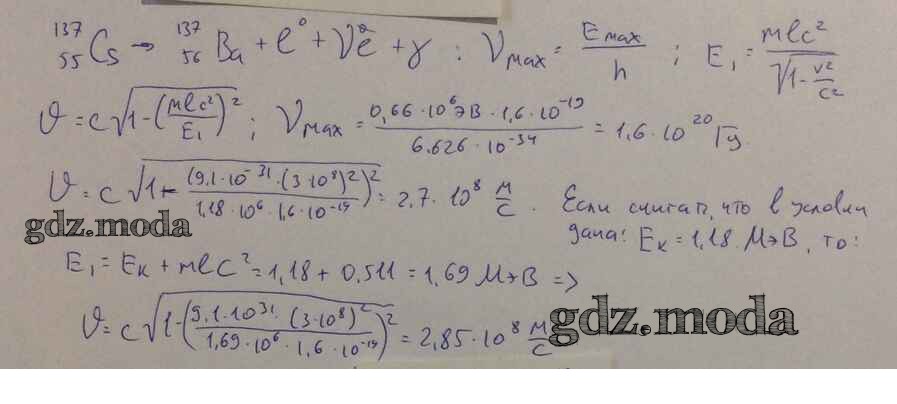 ¹³⁷₅₅Cs → ¹³⁷₅₆Ba + e⁰ + ν⁰e + γ ; νmax = Emax / h ; E₁ = mec² / √(1 - v²/c²)
υ = c√(1 - (mec²/E₁)²) ; νmax = 0,66·10⁶эВ·1,6·10⁻¹⁹ / 6.626·10⁻³⁴ = 1,6·10²⁰ Гц.
υ = c√(1 - ((9,1·10⁻³¹·(3·10⁸)²) / (1,18·10⁶·1,6·10⁻¹⁹))²) = 2,7·10⁸ м/с. Если считать, что в условии
gdz.moda
дана: Eк = 1,18 МэВ, то:
E₁ = Eк + mec² = 1,18 + 0,511 = 1,69 МэВ =>
υ = c√(1 - ((9,1·10³¹·(3·10⁸)²) / (1,69·10⁶·1,6·10⁻¹⁹))²) = 2,85·10⁸ м/с
gdz.moda